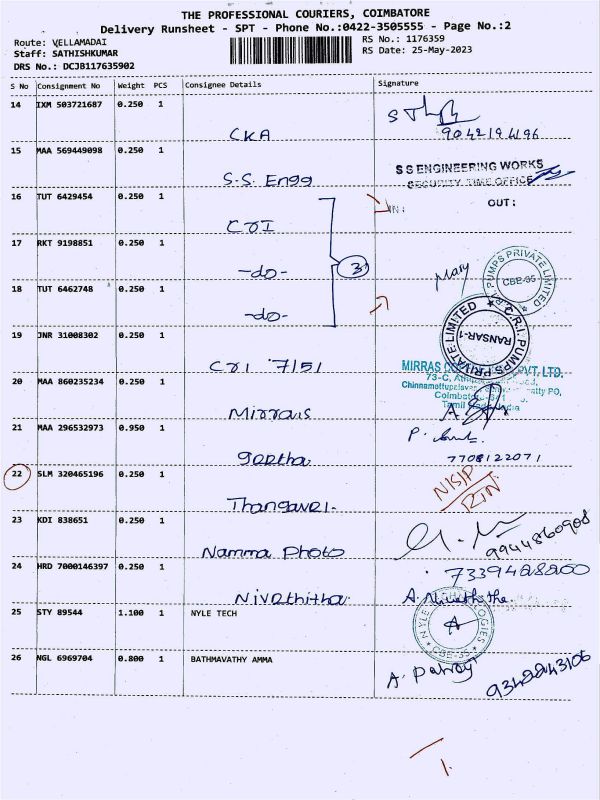 THE PROFESSIONAL COURIERS, COIMBATORE
Delivery Runsheet - SPT - Phone No.:0422-3505555 - Page No.:2
Route: VELLAMADAI
Staff: SATHISHKUMAR
DRS No.: DCJB117635902
RS No.: 1176359
RS Date: 25-May-2023
S No Consignment No Weight PCS Consignee Details Signature
14 IXM 503721687 0.250 1
CKA
15 MAA 569449098 0.250 1
S.S. Engg
S S ENGINEERING WORKS
SECURITY TIME OFFICE
16 TUT 6429454 0.250 1
IN: OUT:
CRI
17 RKT 9198851 0.250 1
-do-
3
Mary
PUMPS PRIVATE LIMITED
CBE-35
18 TUT 6462748 0.250 1
-do-
C.R.I. PUMPS PRIVATE LIMITED
RANSAR-1
19 JNR 31008302 0.250 1
CRI 7/51
MIRRAS PVT. LTD.
73-C,
20 MAA 860235234 0.250 1
Mirras
Coimbatore
Tamil Nadu, India
21 MAA 296532973 0.950 1
Geetha
7708122071
22 SLM 320465196 0.250 1
Thangavel.
RTN
23 KDI 838651 0.250 1
Namma Photo
9944860908
24 HRD 7000146397 0.250 1
7339428200
Nivethitha
A. Nivethitha.
25 STY 89544 1.100 1 NYLE TECH
NYLE TECHNOLOGIES
CBE-35
26 NGL 6969704 0.800 1 BATHMAVATHY AMMA
9342243106